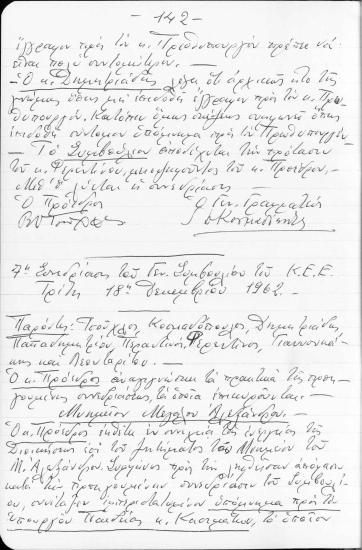 -142-
ἔγγραφον πρὸς τὸν κ. Πρωθυπουργὸν πρέπει νὰ
εἶναι πολὺ συντομώτερον. -
- Ὁ κ. Δημητριάδης λέγει ὅτι ἀρχικῶς ἦτο τῆς
γνώμης ὅπως μὴ ἐπιδοθῇ ἔγγραφον πρὸς τὸν κ. Πρω-
θυπουργόν. Κατόπιν ὅμως σκέψεως συμφωνεῖ ὅπως
ἐπιδοθῇ σύντομον ὑπόμνημα πρὸς τὸν Πρωθυπουργόν-
- Τὸ Συμβούλιον ἀποδέχεται τὴν πρότασιν
τοῦ κ. Φερεντίνου, μειοψηφοῦντος τοῦ κ. Προέδρου. -
- Μεθ' ὃ λύεται ἡ συνεδρίασις -
Ὁ Πρόεδρος Ὁ Γεν. Γραμματεὺς
7η Συνεδρίασις τοῦ Γεν. Συμβουλίου τοῦ Κ.Ε.Ε.
Τρίτη 18η Δεκεμβρίου 1962. -
Παρόντες: Κοσμαδόπουλος, Δημητριάδης,
Παπαδημητρίου, Φερεντῖνος,
καὶ Λεονταρίτου. -
Ὁ κ. Πρόεδρος ἀναγιγνώσκει τὰ πρακτικὰ τῆς προη-
γουμένης συνεδριάσεως, τὰ ὁποῖα ἐπικυροῦνται. -
- Μνημεῖον Μεγάλου Ἀλεξάνδρου. -
Ὁ κ. Πρόεδρος ἐκθέτει ἐν συνεχείᾳ τὰς ἐνεργείας τῆς
Διοικήσεως ἐπὶ τοῦ ζητήματος τοῦ Μνημείου τοῦ
Μ. Ἀλεξάνδρου. Συμφώνως πρὸς τὴν ληφθεῖσαν ἀπόφασιν
κατὰ τὴν προηγουμένην συνεδρίασιν τοῦ Συμβουλί-
ου, συνέταξεν ἐμπεριστατωμένον ὑπόμνημα πρὸς τὸν
Ὑπουργὸν Παιδείας κ. Κασιμάτην, τὸ ὁποῖον